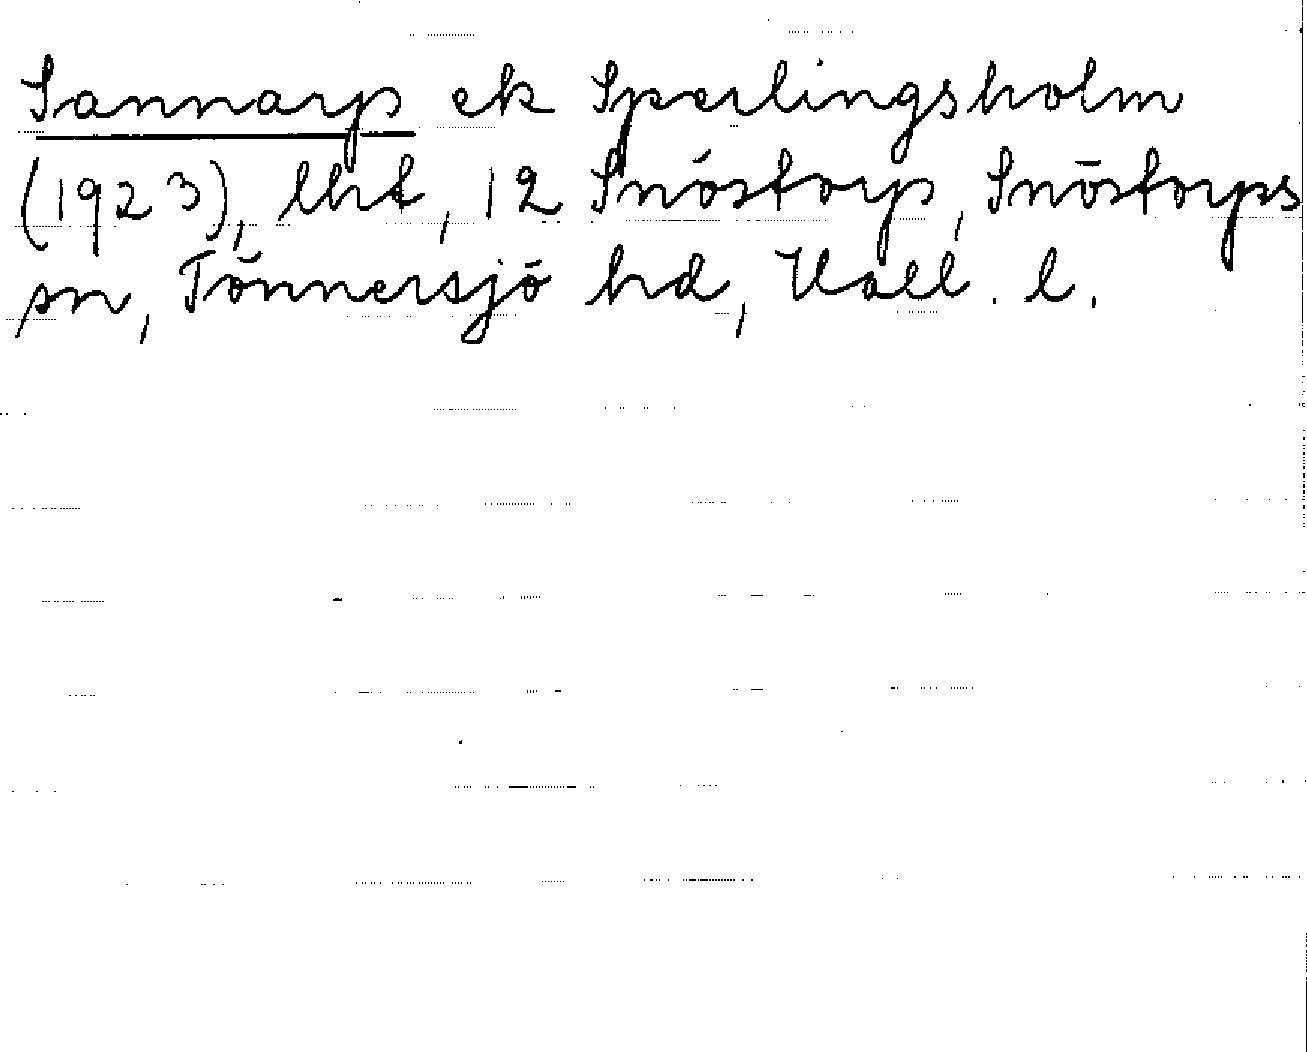 Sannarp ek Sperlingsholm
(1923), lht, 12 Snöstorp, Snöstorps
sn, Tönnersjö hd, Hall. l.